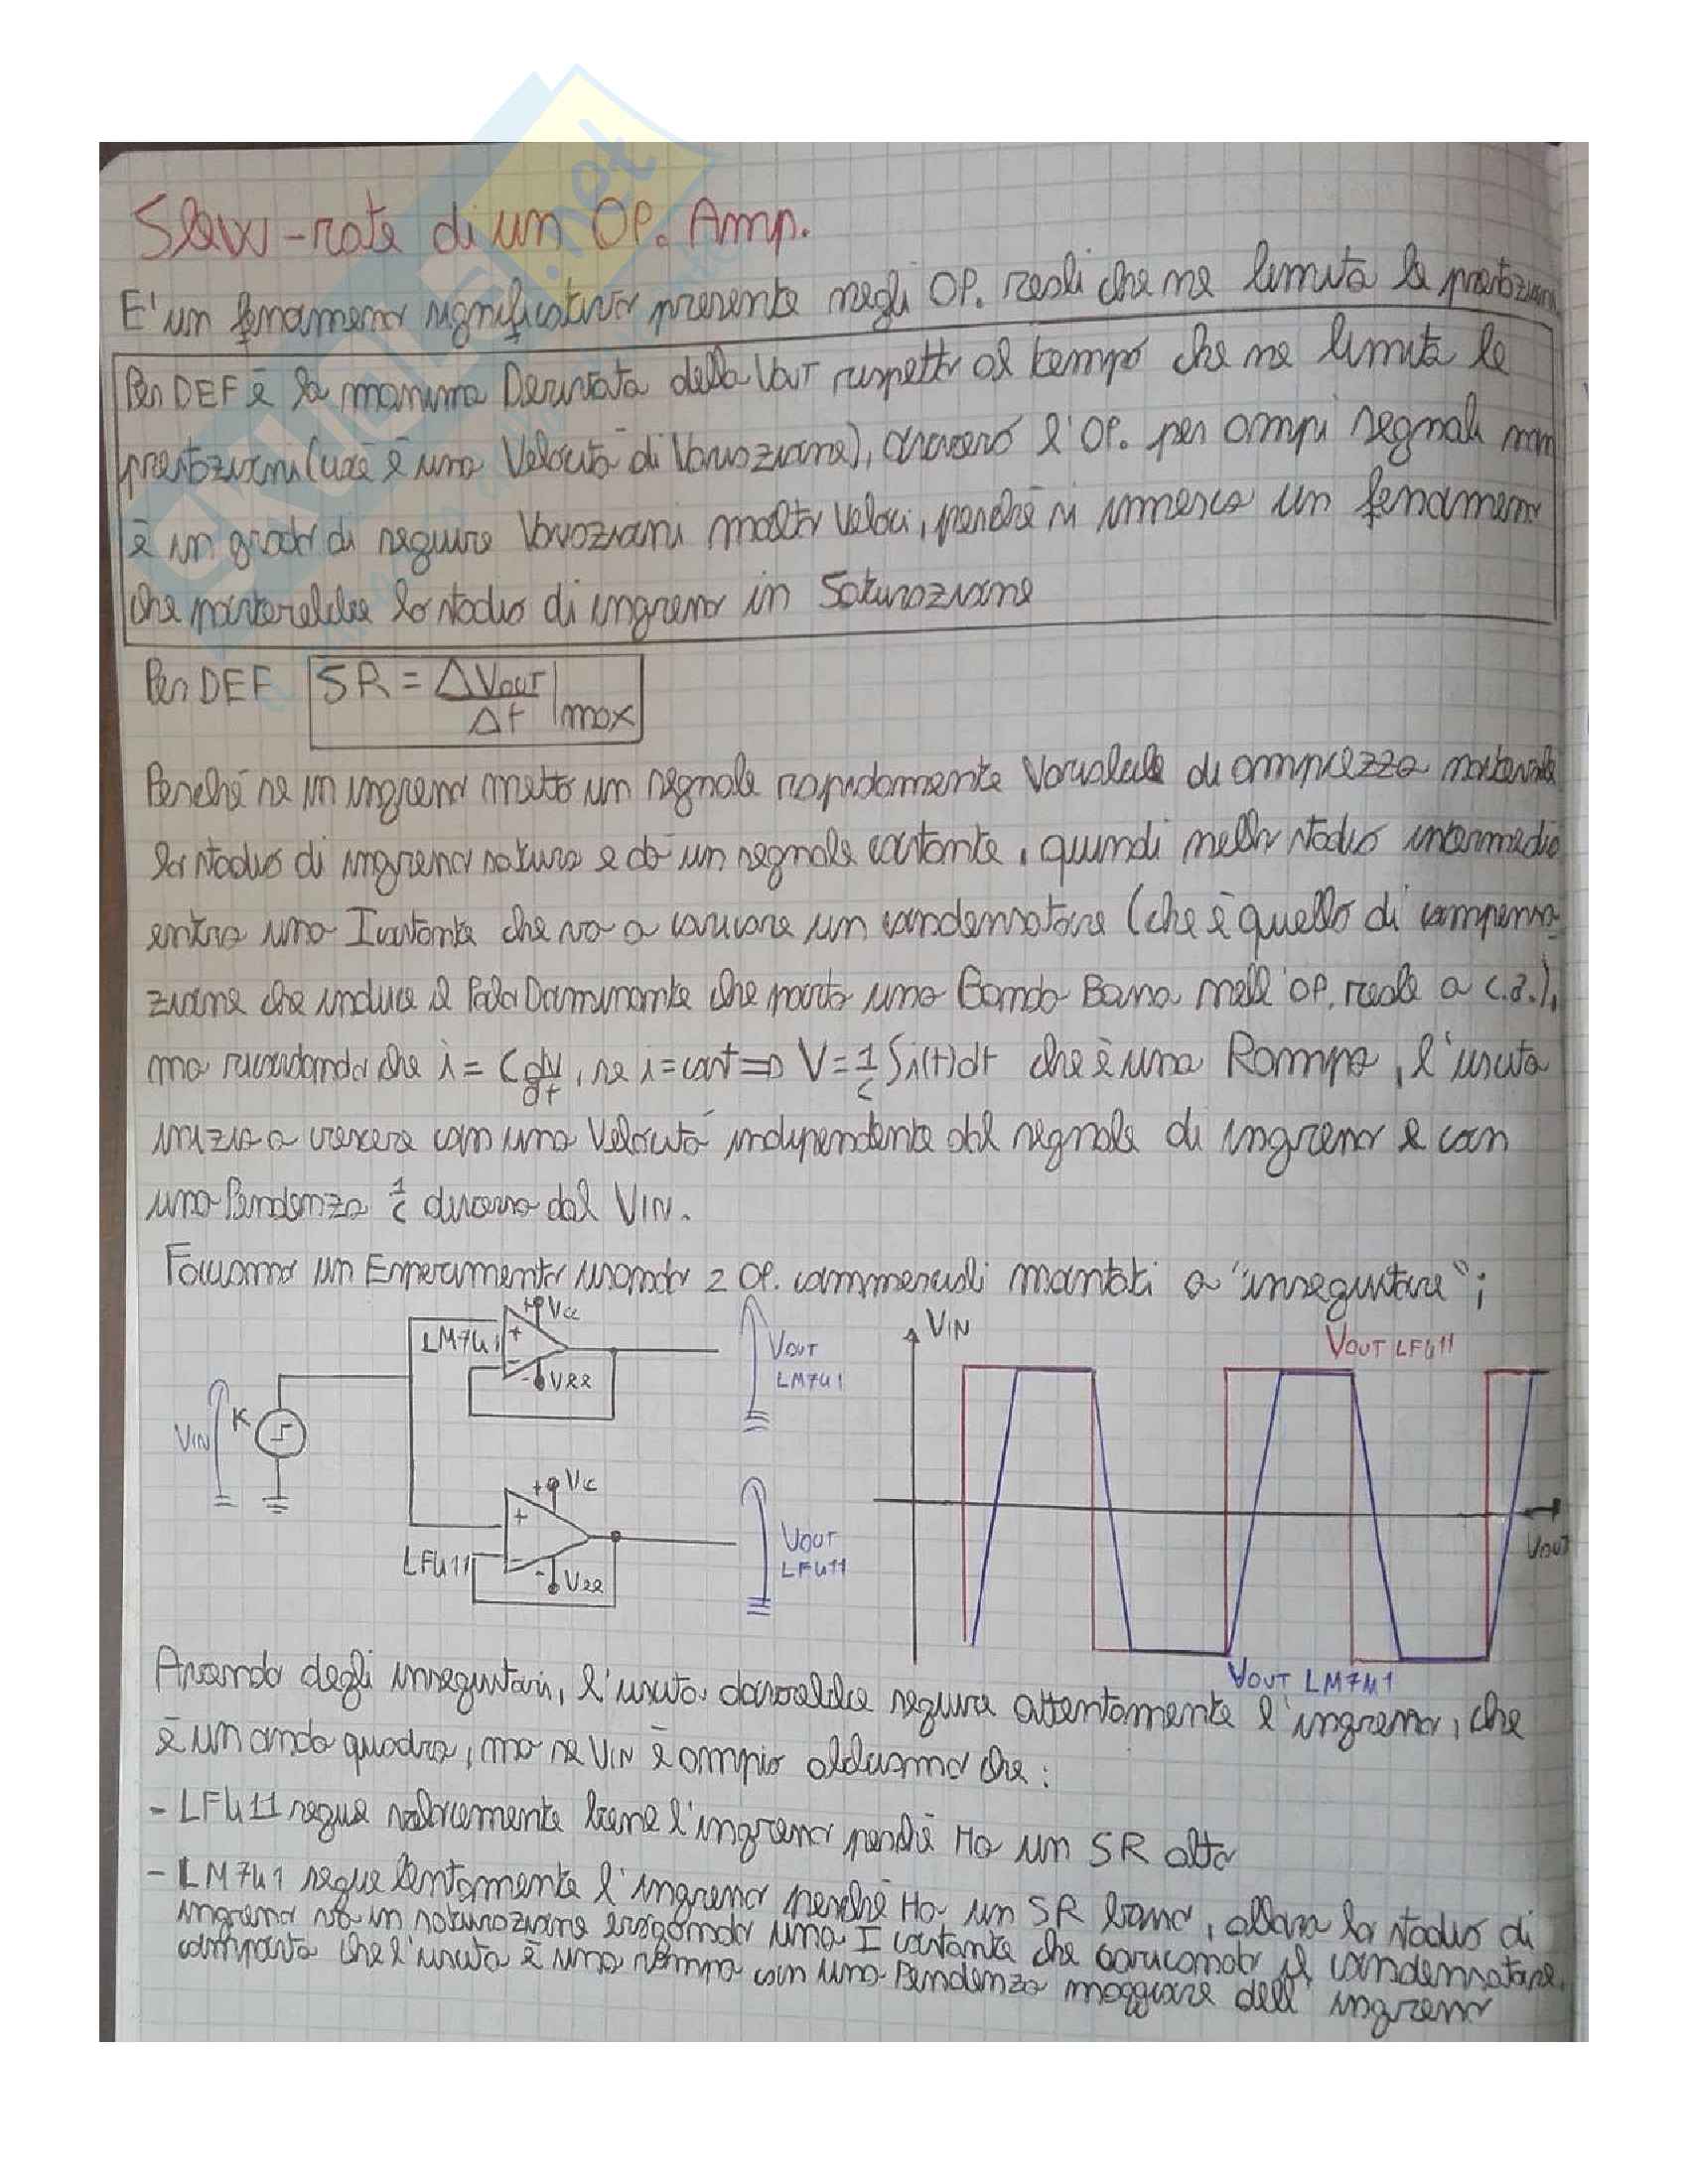 Slew-rate di un OP. Amp.
E' un fenomeno significativo presente negli OP. reali che ne limita le prestazioni
Per DEF è la massima Derivata della VOUT rispetto al tempo che ne limita le
prestazioni (cioè è una Velocità di Variazione), ovvero l'OP. per ampi segnali non
è in grado di seguire Variazioni molto veloci, perché si innesca un fenomeno
che porterebbe lo stadio di ingresso in Saturazione
Per DEF SR = ΔVOUT/Δt |max
Perché se in ingresso metto un segnale rapidamente Variabile di ampiezza notevole
lo stadio di ingresso satura e dà un segnale costante, quindi nello stadio intermedio
entra una I costante che va a caricare un condensatore (che è quello di compensa-
zione che induce il Polo Dominante che porta una Banda Bassa nell'OP. reale a c.a.),
ma ricordando che i = C dv/dt, se i = cost => V = 1/C ∫i(t)dt che è una Rampa, l'uscita
inizia a crescere con una Velocità indipendente dal segnale di ingresso e con
una Pendenza 1/C diversa dal VIN.
Facciamo un Esperimento usando 2 OP. commerciali montati a "inseguitore";
+VCC
LM741
+
-
-VEE
VOUT
LM741
VIN
K
+VCC
+
-
LF411
-VEE
VOUT
LF411
VIN
VOUT LF411
VOUT
VOUT LM741
Avendo degli inseguitori, l'uscita dovrebbe seguire attentamente l'ingresso, che
è un'onda quadra, ma se VIN è ampio abbiamo che:
- LF411 segue velocemente bene l'ingresso perchè Ha un SR alto
- LM741 segue lentamente l'ingresso perchè Ha un SR basso, allora lo stadio di
ingresso va in saturazione erogando una I costante che caricando il condensatore,
comporta che l'uscita è una rampa con una Pendenza maggiore dell'ingresso